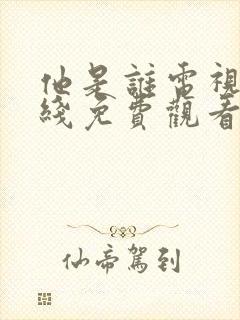 他是誰電視
綫免費觀看
仙帝駕到